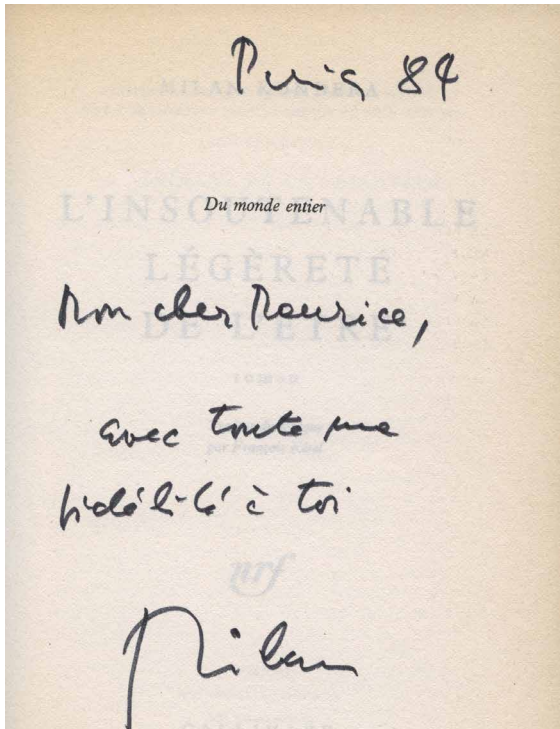 Paris 84
MILAN KUNDERA
Du monde entier
L'INSOUTENABLE
LÉGÈRETÉ
DE L'ÊTRE
roman
Mon cher Maurice,
avec toute ma
fidélité à toi
nrf
Milan
GALLIMARD